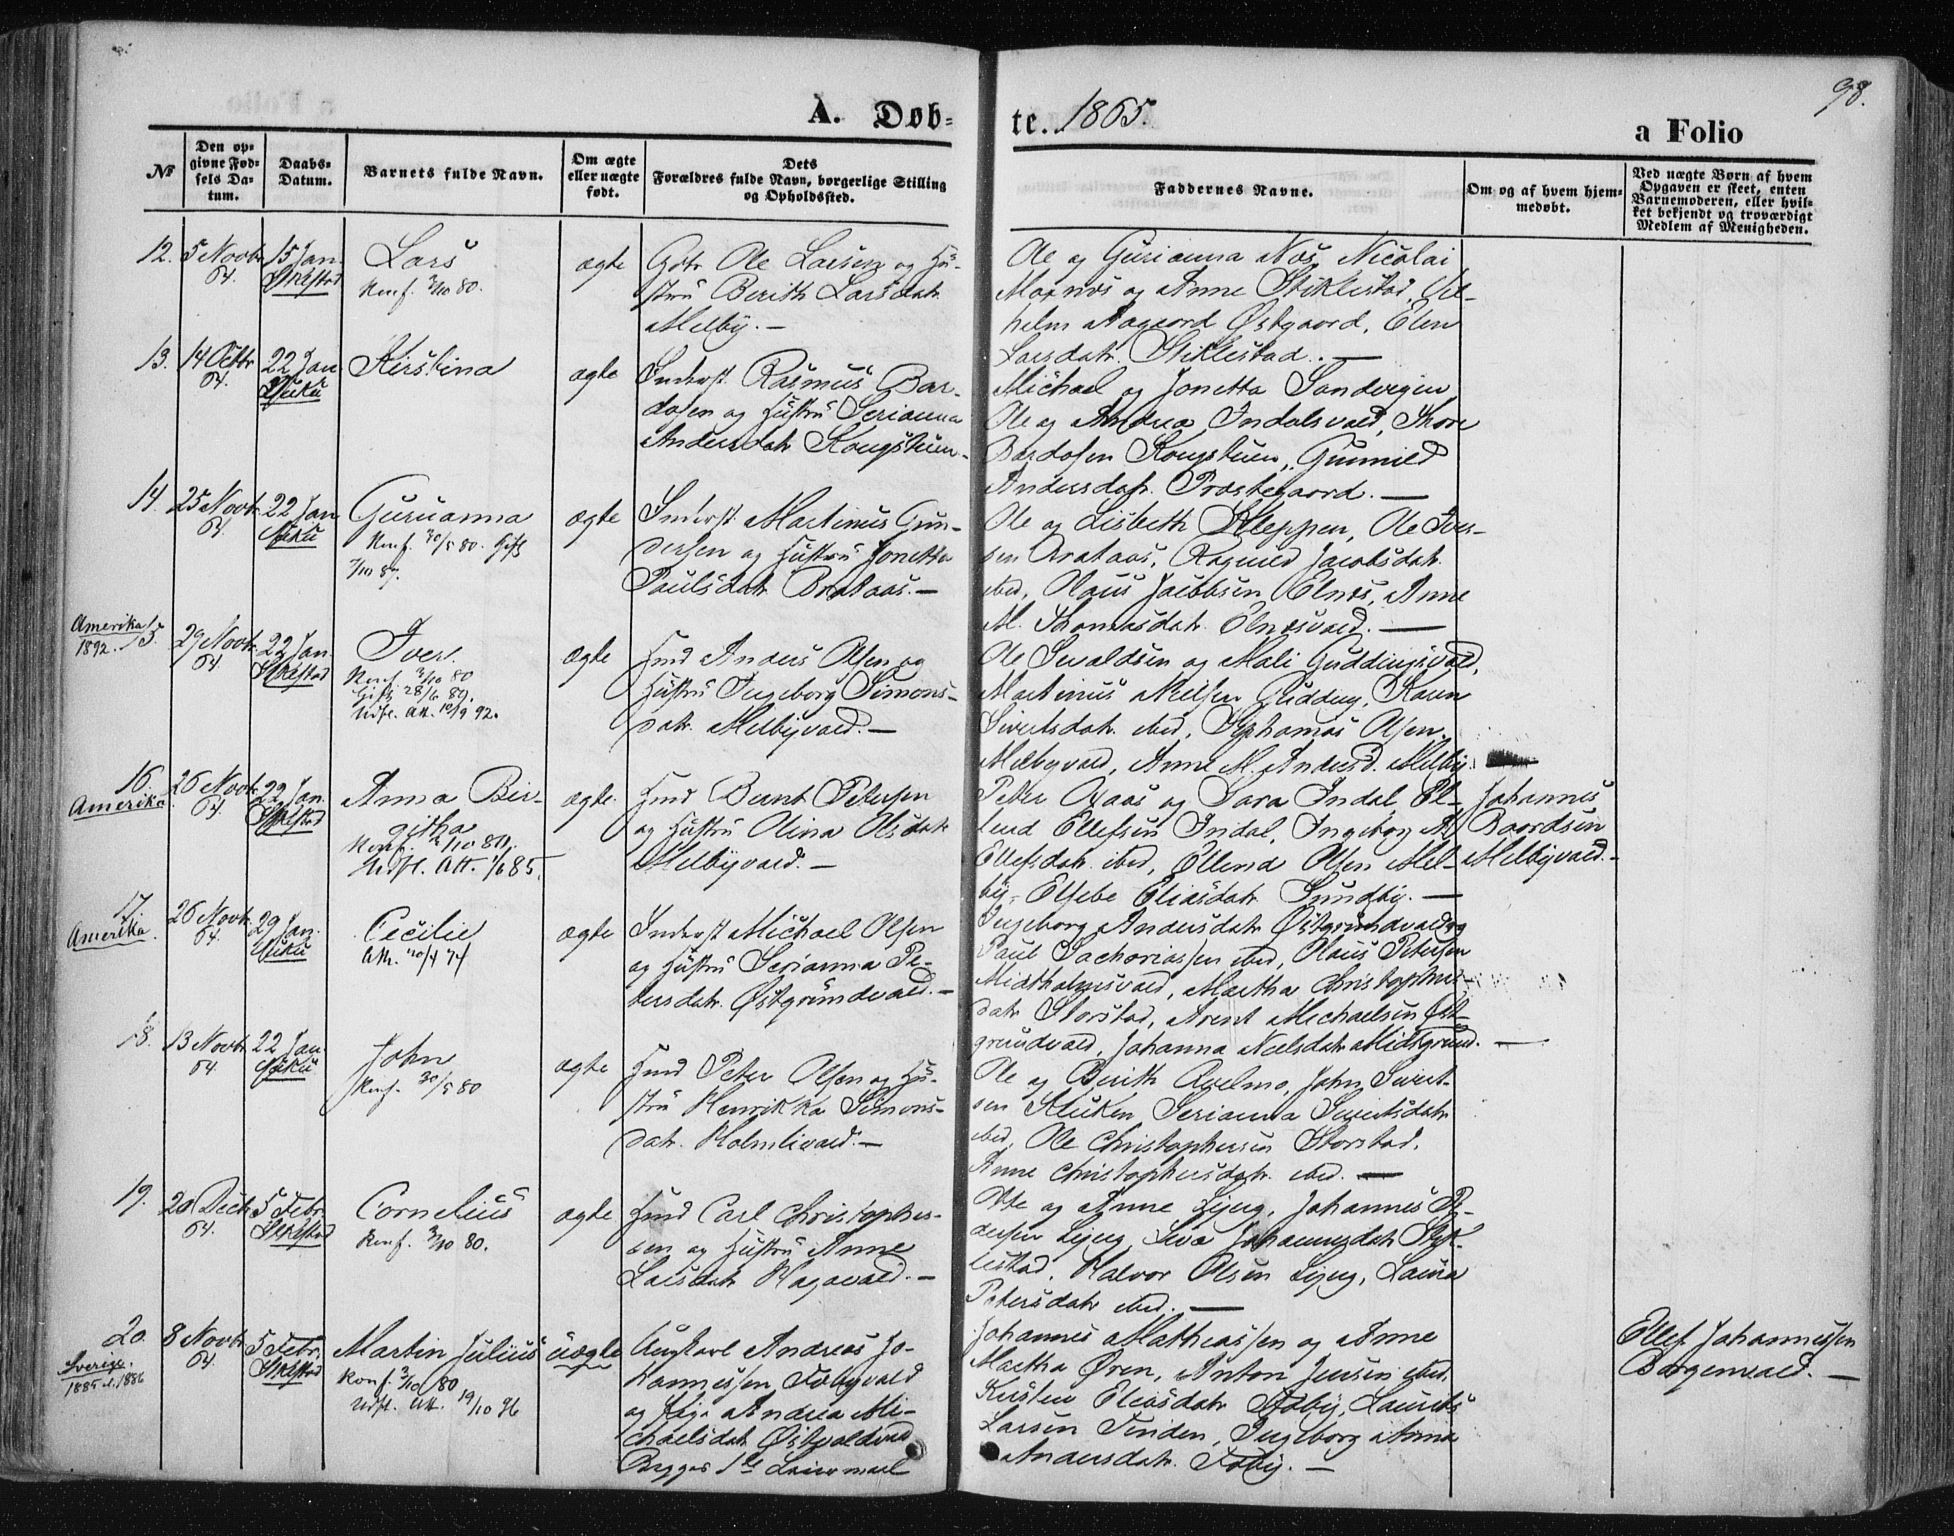 98.
A. Døb-
te. 1865.
a Folio
№
Den op-
givne Fød-
sels Da-
tum.
Daabs-
Datum.
Barnets fulde Navn.
Om ægte
eller uægte
født.
Dets
Forældres fulde Navn, borgerlige Stilling
og Opholdssted.
Faddernes Navne.
Om og af hvem hjem-
medøbt.
Ved uægte Børn af hvem
Opgaven er skeet, enten
Barnemoderen, eller hvil-
ket bekjendt og troværdigt
Medlem af Menigheden.
12.
5 Novbr
64.
15 Jan.
Stklstad
Lars
Konf. 3/10 80.
ægte
Gbr. Ole Larsen og Hu-
stru Berith Larsdatr
Melby.—
Ole og Gurianna Næs, Nicolai
Maanes og Anne Stiklestad, Vil-
helm Aagaard Østgaard, Elen
Larsdatr. Stiklestad.—
13.
14 Octbr
64.
22 Jan
Kirstina
ægte
Inderst. Rasmus Bar-
dosen og Hustru Serianna
Andersdatr Kongstuen.
Michael og Jonetta Sandvigen
Ole og Andrea Indalsvald, Thore
Bardosen Kongstuen, Gunnild
Andersdatr. Præstegaard.—
14.
25 Novbr.
64.
22 Jan
Guruanna
Konf. 30/5 80. Gift
7/10 87.
ægte
Inderst Martinus Gun-
dersen og Hustru Jonetta
Paulsdatr Brataas.—
Ole og Lisbeth Kleppen, Ole Iver-
sen Brataas, Ragnild Jacobsdatr.
ibid, Olaus Jacobsen Elnæs, Anne
M. Thomasdatr. Elnæsvald.—
Amerika
1892.
15.
29 Novbr.
64.
22 Jan
Stklstad
Iver.
Konf. 3/10 80
Gift 28/6 89.
Udfl. Att. 10/9 92.
ægte
Hmd Anders Olsen og
Hustru Ingeborg Simons-
datr. Melbyvald.—
Ole Sevaldsen og Mali Guddingsvald,
Martinus Nilsen Gudding, Karen
Sivertsdatr. ibid, Sephanias Olsen
Melbyvald, Anne M. Andersd. Melby
16.
Amerika
26 Novbr.
64.
22 Jan.
Stklstad
Anna Ber-
githa
Konf. 3/10 80.
Udfl. Att. 1/6 85.
ægte.
Hmd Bernt Petersen
og Hustru Olina Olsdatr
Melbyvald.—
Peter Aaas og Sara Indal, El-
lend Ellefsen Indal, Ingeborg M
Ellefsdatr. ibid, Ellend Olsen Mel-
by, Elsebe Eliasdatr. Sundby.—
Johannes
Baardsen
Melbyvald.—
17
Amerika.
26 Novbr.
64.
29 Jan.
Cecilie
Att. 20/4 74
ægte
Inderst Michael Olsen
og Hustru Serianna Pe-
tersdatr. Østgrundvald.—
Ingeborg Andersdatr Østgrundvald og
Paul Sachariassen ibid, Olaus Petersen
Midtholmsvald, Martha Christopher-
datr Storstad, Arent Michaelsen Øst-
grundvald, Johanna Nilsdatr Midtgrund.—
18.
13 Novbr
64.
22 Jan.
John
Konf. 30/5 80
ægte
Hmd Peter Olsen og Hu-
stru Henrikka Simons-
datr. Holmlivald.—
Ole og Berith Avelmo, John Sivert-
sen Slucken Serianna Sivertsdatr
ibid, Ole Christophersen Storstad,
Anne Christophersdatr. ibid.—
19.
20 Decb
64.
5 Febr.
Stklstad
Cornelius
Konf. 3/10 80.
ægte
Hmd Carl Christopher-
sen og Hustru Anne
Larsdatr Hagavald.—
Otte og Anne Lyng, Johannes Pe-
dersen Lyng, Siva Johannesdatr Stik-
lestad, Halvor Olsen Lyng, Laura
Petersdatr ibid.—
20.
Sverige.
1885 el. 1886
8 Novbr
64.
5 Febr.
Stklstad
Martin Julius
Konf. 3/10 80
Udfl. Att. 19/10 96
uægte
Ungkarl Andreas Jo-
hannessen Fobyvald
og Pige Andrea Mi-
chaelsdatr Østvoldvald
Begges 1ste Leiermaal
Johannes Mathiassen og Anne
Martha Øren, Anton Jensen ibid,
Kirsten Eliasdatr Foby, Laurits
Larsen Tinden, Ingeborg Anna
Andersdatr. Foby.—
Ellef Johannessen
Borgenvald.—